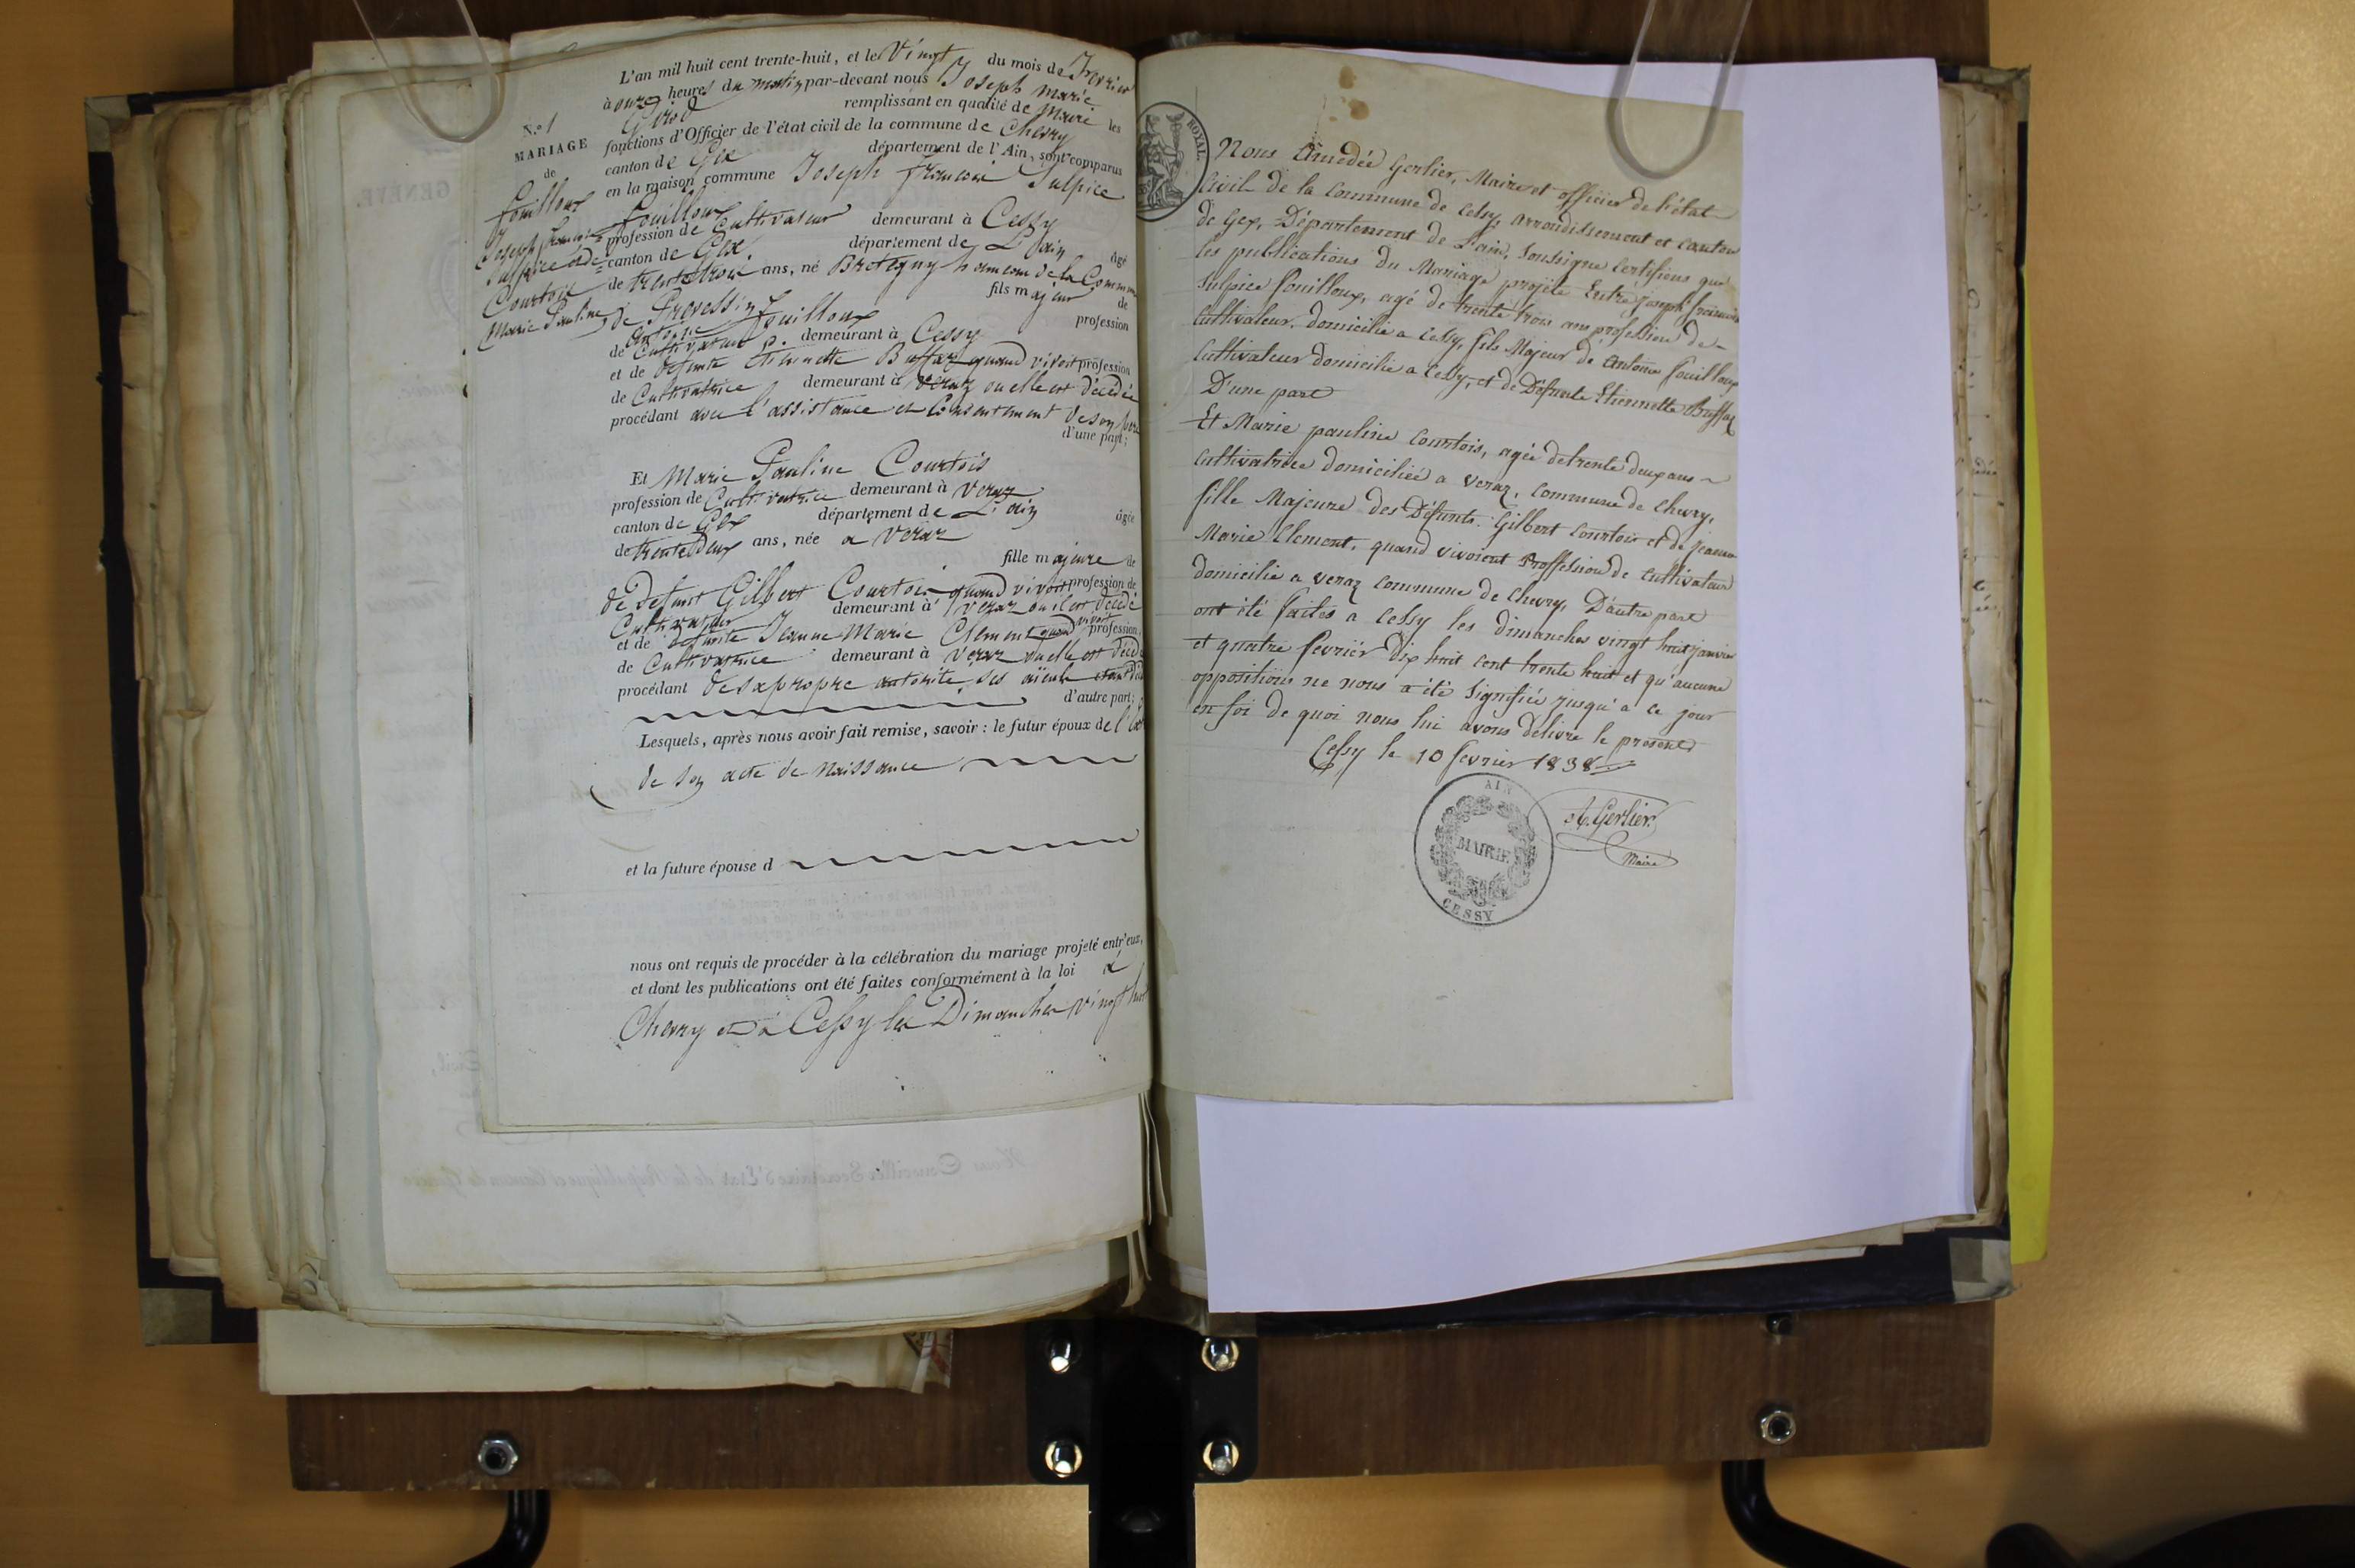 L'an mil huit cent trente-huit, et le Vingt du mois de fevrier
à onze heures du matin par-devant nous Joseph Marie
Girod remplissant en qualité de Maire les
fonctions d'Officier de l'état civil de la commune de Chevry
canton de Gex département de l'Ain, sont comparus
en la maison commune Joseph françois Sulpice
fouilloux
profession de Cultivateur demeurant à Cessy
canton de Gex département de L'ain âgé
de trente trois ans, né Bretegny hameau de la Commune
de Prevessin fils majeur de
antoine fouilloux profession
de Cultivateur demeurant à Cessy
et de defunte Etiennette Buffaz quand vivoit profession
de Cultivatrice demeurant à Veraz ou elle est décédée
procédant avec l'assistance et Consentement de son Père
d'une part;
N.o 1
MARIAGE
de
fouilloux
Joseph françois
Sulpice et de
Courtois
Marie Pauline
Et Marie Pauline Courtois
profession de Cultivatrice demeurant à Veraz
canton de Gex département de L'ain âgée
de trente Deux ans, née a Veraz
fille majeure de
de defunt Gilbert Courtois quand vivoit profession de
Cultivateur demeurant à Veraz ou il est décédé
et de defunte Jeanne Marie Clement quand vivoit profession
de Cultivatrice demeurant à Veraz ou elle est décédé
procédant de sa propre autorité, ses aïeuls
d'autre part;
Lesquels, après nous avoir fait remise, savoir: le futur époux de
de son acte de Naissance
et la future épouse d
nous ont requis de procéder à la célébration du mariage projeté entr'eux,
et dont les publications ont été faites conformément à la loi à
Chevry et à Cessy les Dimanches Vingt huit
ROYAL
Nous Amedée Gerlier, Maire et officier de l'état
Civil de la Commune de Cessy, arrondissement et canton
de Gex, Département de l'ain, soussigné certifions que
les publications du Mariage projeté Entre joseph françois
Sulpice fouilloux, agé de trente trois ans profession de
Cultivateur. domicilié a Cessy, fils Majeur de Antoine fouilloux
Cultivateur domicilié a Cessy, et de Défunte Etiennette Buffaz
D'une part
Et Marie pauline Courtois, agée de trente deux ans
cultivatrice domiciliée a veraz, commune de Chevry,
fille Majeure des Défunts. Gilbert Courtois et de jeanne
Marie Clement, quand vivoient Proffession de Cultivateur
domicilié a veraz commune de Chevry, D'autre part
ont été faites a Cessy les dimanches vingt huit janvier
et quatre fevrier Dix huit cent trente huit et qu'aucune
oppositions ne nous a été signifié jusqu'a ce jour
en foi de quoi nous lui avons délivré le present
Cessy le 10 fevrier 1838
A. Gerlier.
Maire
AIN
MAIRIE
CESSY
GENÈVE.